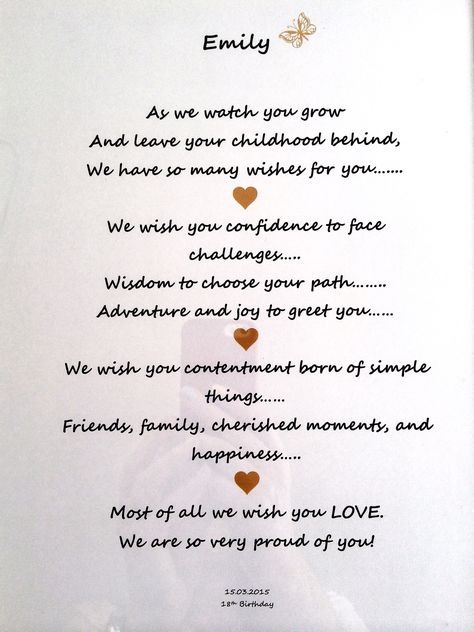 Emily
As we watch you grow
And leave your childhood behind,
We have so many wishes for you.......
We wish you confidence to face
challenges.....
Wisdom to choose your path........
Adventure and joy to greet you......
We wish you contentment born of simple
things......
Friends, family, cherished moments, and
happiness.....
Most of all we wish you LOVE.
We are so very proud of you!
15.03.2015
18th Birthday